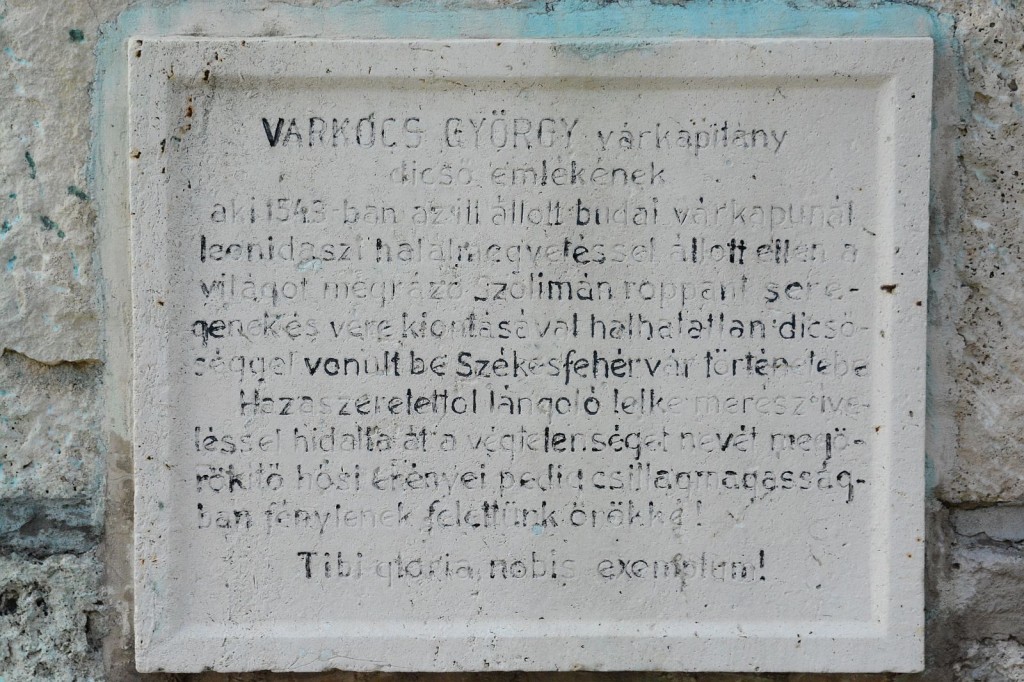 VARKÓCS GYÖRGY várkapitány
dicső emlékének
aki 1543-ban az itt állott budai várkapunál
leonidaszi halálmegvetéssel állott ellen a
világot megrázó Szolimán roppant sere-
gének és vére kiontásával halhatatlan dicső
séggel vonult be Székesfehérvár történetébe
Hazaszeretettől lángoló lelke merész íve-
léssel hidalta át a végtelenséget nevét megö-
rökítő hősi erényei pedig csillagmagasság-
ban fénylenek felettünk örökké!
Tibi gloria, nobis exemplum!